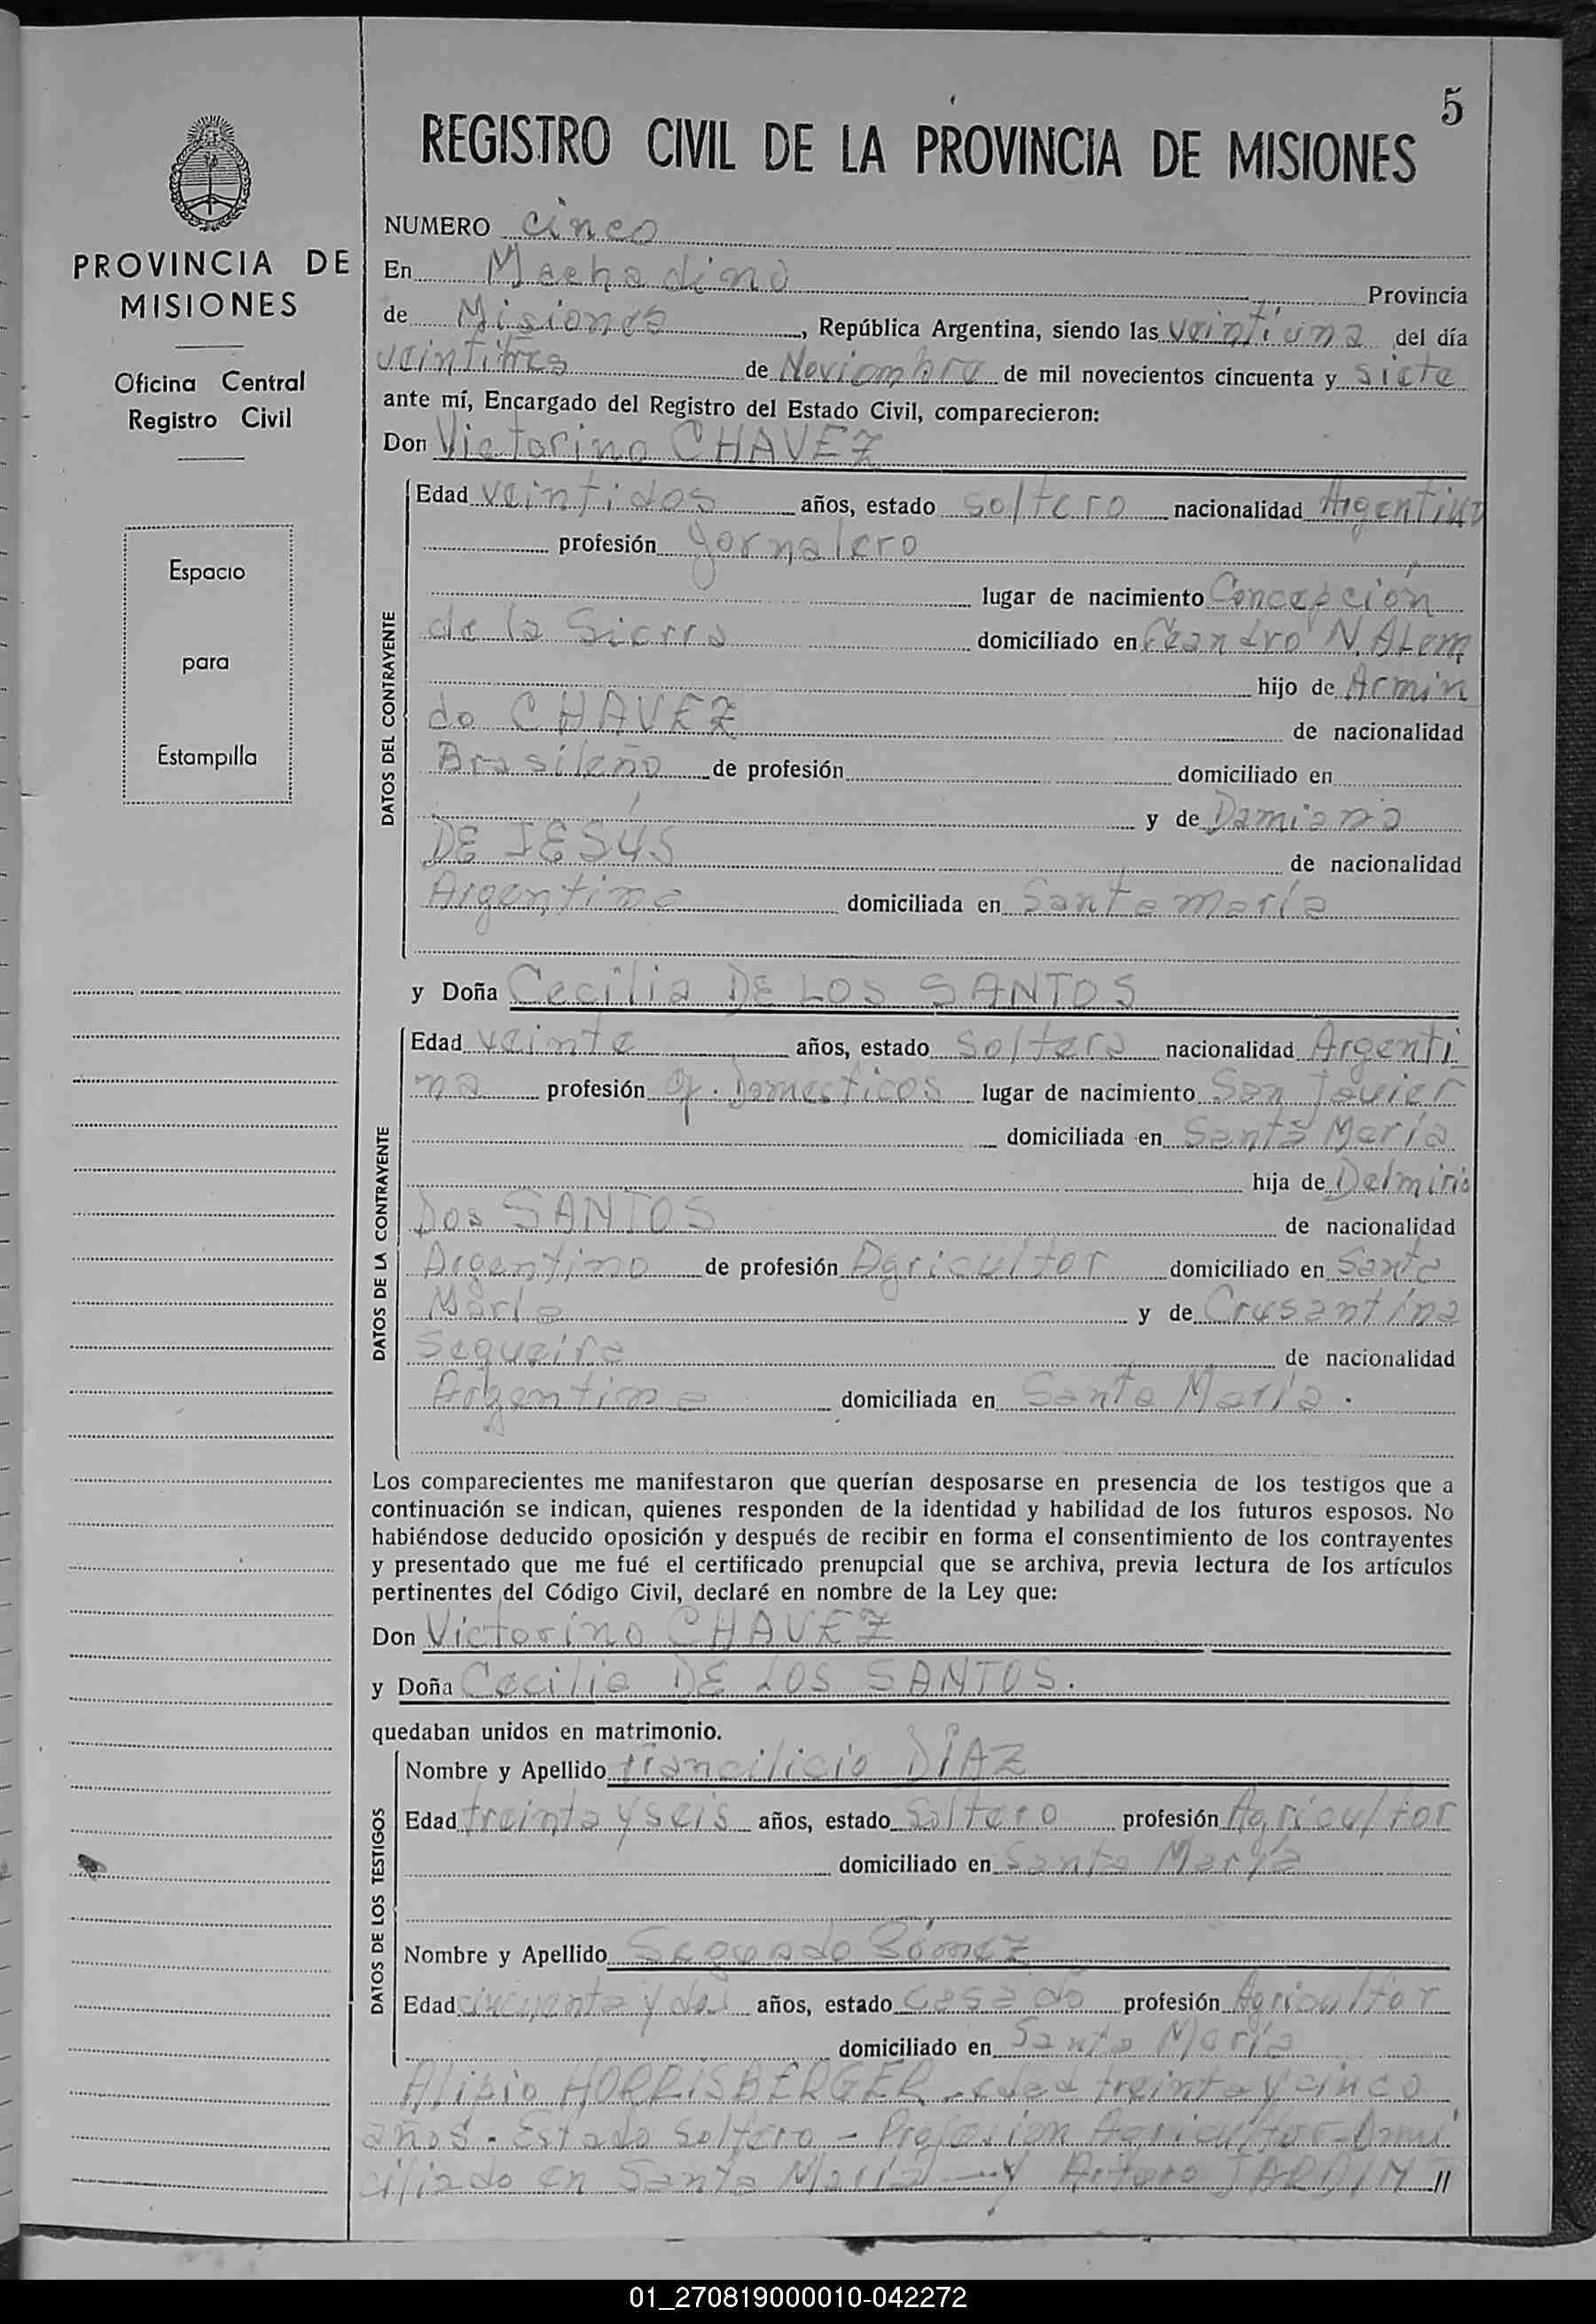 5
REGISTRO CIVIL DE LA PROVINCIA DE MISIONES
PROVINCIA DE
MISIONES
Oficina Central
Registro Civil
Espacio
para
Estampilla
NUMERO cinco
En Machadino Provincia
de Misiones, República Argentina, siendo las veintiuna del día
veintitres de Noviembre de mil novecientos cincuenta y siete
ante mí, Encargado del Registro del Estado Civil, comparecieron:
Don Victorino CHAVEZ
DATOS DEL CONTRAYENTE
Edad veintidos años, estado soltero nacionalidad Argentino
profesión Jornalero
lugar de nacimiento Concepción
de la Sierra domiciliado en Leandro N. ALem
hijo de Armin
do CHAVEZ de nacionalidad
Brasileño de profesión domiciliado en
y de Damiana
DE JESÚS de nacionalidad
Argentina domiciliada en Santa maría
y Doña Cecilia DE LOS SANTOS
DATOS DE LA CONTRAYENTE
Edad veinte años, estado Soltera nacionalidad Argenti
na profesión q. Domesticos lugar de nacimiento San Javier
domiciliada en Santa María
hija de Delmirio
Dos SANTOS de nacionalidad
Argentino de profesión Agricultor domiciliado en Santa
María y de Crusantina
Sequeira de nacionalidad
Argentina domiciliada en Santa María.
Los comparecientes me manifestaron que querían desposarse en presencia de los testigos que a
continuación se indican, quienes responden de la identidad y habilidad de los futuros esposos. No
habiéndose deducido oposición y después de recibir en forma el consentimiento de los contrayentes
y presentado que me fué el certificado prenupcial que se archiva, previa lectura de los artículos
pertinentes del Código Civil, declaré en nombre de la Ley que:
Don Victorino CHAVEZ
y Doña Cecilia DE LOS SANTOS.
quedaban unidos en matrimonio.
DATOS DE LOS TESTIGOS
Nombre y Apellido DÍAZ
Edad treinta y seis años, estado Soltero profesión Agricultor
domiciliado en Santa María
Nombre y Apellido Segundo Gómez
Edad cincuenta y dos años, estado casado profesión Agricultor
domiciliado en Santa María
Alipio HORRISBERGER - edad treinta y cinco
años - Estado Soltero - Profesion Agricultor - Domi
ciliado en Santa María — y Arturo JARDIM //
01_270819000010-042272